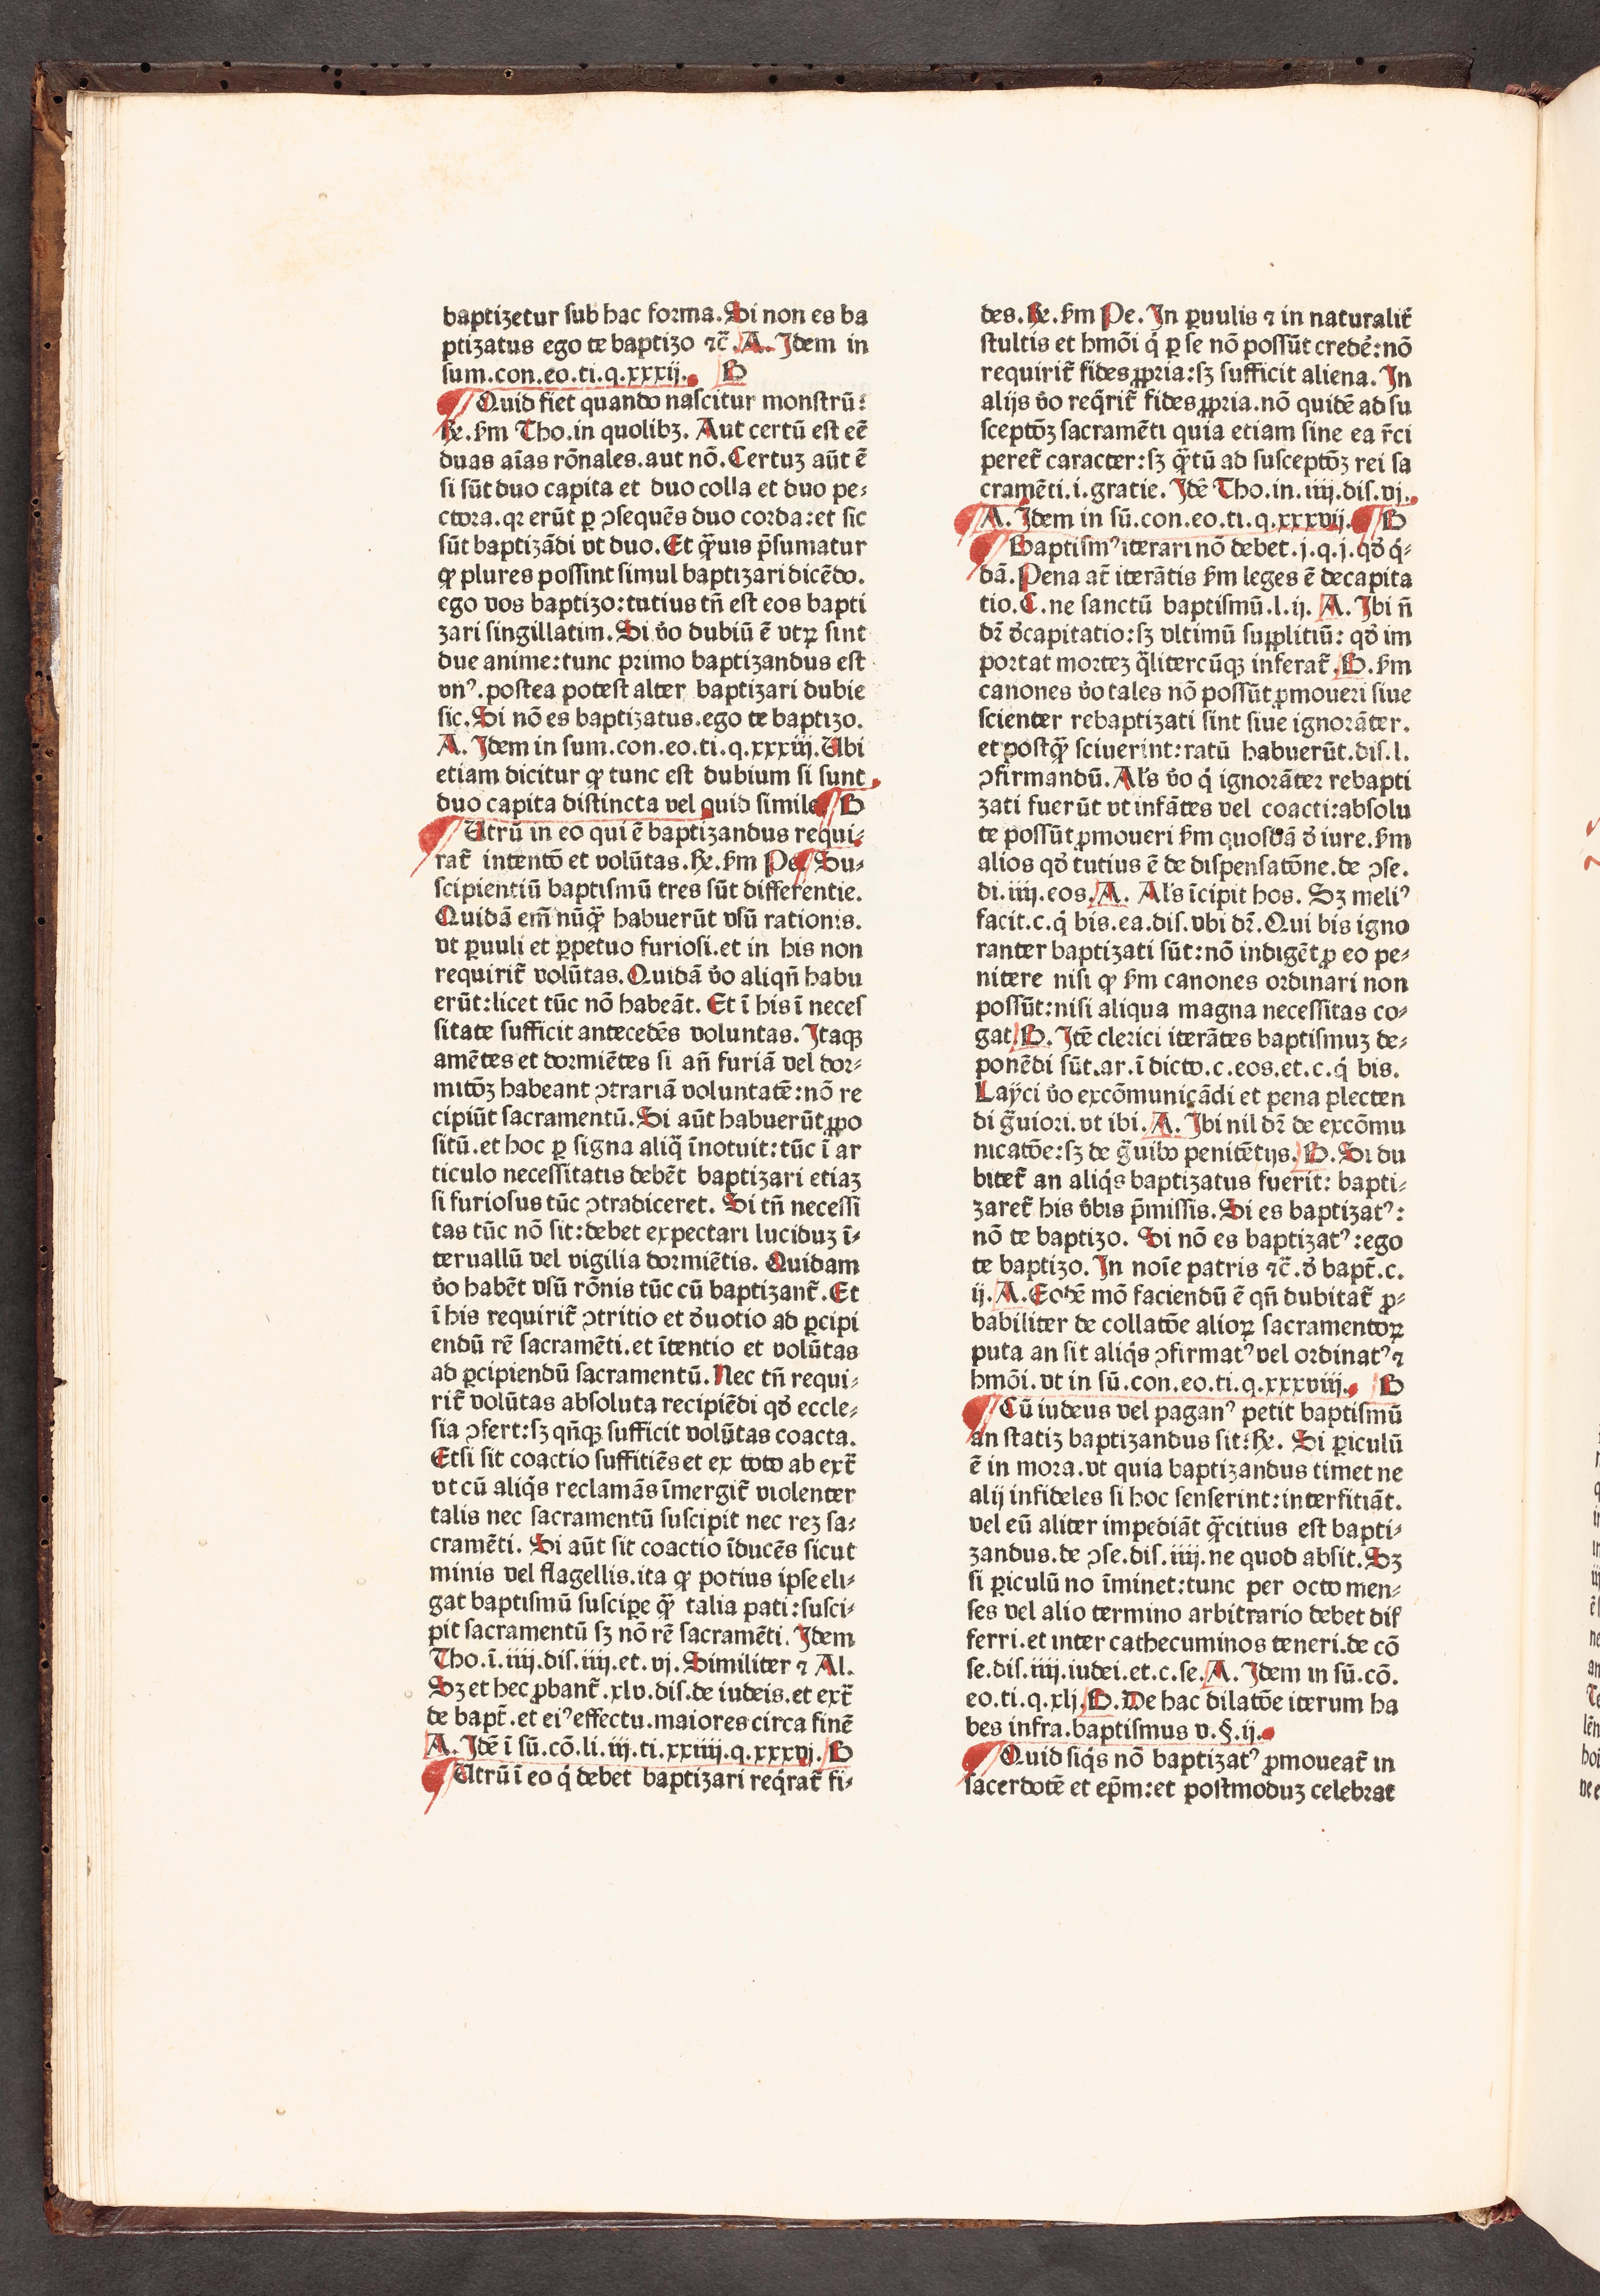 baptizetur sub hac forma. Si non es ba
ptizatus ego te baptizo ⁊c̃. A. Idem in
sum.con.eo.ti.q.xxxij. B
Quid fiet quando nascitur monstrũ:
R̃e. s̃m Tho. in quolibꝫ. Aut certũ est eẽ
duas aĩas rõnales. aut nõ. Certuꝫ aũt ẽ
si sũt duo capita et duo colla et duo pe⸗
ctora. qꝛ erũt ꝑ ↄsequẽs duo corda: et sic
sũt baptizãdi vt duo. Et q̃uis p̃sumatur
ꝙ plures possint simul baptizari dicẽdo.
ego vos baptizo: tutius tñ est eos bapti
zari singillatim. Si v̉o dubiũ ẽ vtꝝ sint
due anime: tunc primo baptizandus est
vnꝰ. postea potest alter baptizari dubie
sic. Si nõ es baptizatus. ego te baptizo.
A. Idem in sum.con.eo.ti.q.xxxiij. Ubi
etiam dicitur ꝙ tunc est dubium si sunt
duo capita distincta vel quid simile. B
Utrũ in eo qui ẽ baptizandus requi⸗
rat̃ intentõ et volũtas. R̃e. s̃m Pe. Su⸗
scipientiũ baptismũ tres sũt differentie.
Quidã em̃ nũq̃ habuerũt vsũ rationis.
vt ꝑuuli et ꝑpetuo furiosi. et in his non
requirit̃ volũtas. Quidã v̉o aliqñ habu
erũt: licet tũc nõ habeãt. Et ĩ his ĩ neces
sitate sufficit antecedẽs voluntas. Itaqꝫ
amẽtes et dormiẽtes si añ furiã vel dor⸗
mitõꝫ habeant ↄtrariã voluntatẽ: nõ re
cipiũt sacramentũ. Si aũt habuerũt ꝓpo
sitũ. et hoc ꝑ signa aliq̃ ĩnotuit: tũc ĩ ar
ticulo necessitatis debẽt baptizari etiaꝫ
si furiosus tũc ↄtradiceret. Si tñ necessi
tas tũc nõ sit: debet expectari luciduꝫ ĩ⸗
teruallũ vel vigilia dormiẽtis. Quidam
v̉o habẽt vsũ rõnis tũc cũ baptizant̃. Et
ĩ his requirit̃ ↄtritio et d̉uotio ad ꝑcipi
endũ rẽ sacramẽti. et ĩtentio et volũtas
ad ꝑcipiendũ sacramentũ. Nec tñ requi⸗
rit̃ volũtas absoluta recipiẽdi qd̉ eccle⸗
sia ↄfert: sꝫ qñqꝫ sufficit volũtas coacta.
Etsi sit coactio suffitiẽs et ex toto ab ext̃
vt cũ aliq̃s reclamãs ĩmergit̃ violenter
talis nec sacramentũ suscipit nec reꝫ sa⸗
cramẽti. Si aũt sit coactio ĩducẽs sicut
minis vel flagellis. ita ꝙ potius ipse eli⸗
gat baptismũ suscipe q̃ talia pati: susci⸗
pit sacramentũ sꝫ nõ rẽ sacramẽti. Idem
Tho. ĩ. iiij. dis. iiij. et. vj. Similiter ⁊ Al.
Sꝫ et hec ꝓbant̃. xlv. dis. de iudeis. et ext̃
de bapt̃. et eiꝰ effectu. maiores circa finẽ
A. Idẽ ĩ sũ.cõ.li.iij.ti.xxiiij.q.xxxvj. B
Utrũ ĩ eo q̇ debet baptizari req̇rat̃ fi⸗
des. R̃e. s̃m Pe. In ꝑuulis ⁊ in naturalit̃
stultis et hmõi q̇ ꝑ se nõ possũt credẽ: nõ
requirit̃ fides ꝓpria: sꝫ sufficit aliena. In
alijs v̉o req̇rit̃ fides ꝓpria. nõ quidẽ ad su
sceptõꝫ sacramẽti quia etiam sine ea r̃ci
peret̃ caracter: sꝫ q̃tũ ad susceptõꝫ rei sa
cramẽti. i. gratie. Idẽ Tho. in. iiij. dis. vj.
A. Idem in sũ.con.eo.ti.q.xxxvij. B
Baptismꝰ iterari nõ debet. j. q. j. qd̉ q̇⸗
dã. Pena at̃ iterãtis s̃m leges ẽ decapita
tio. C. ne sanctũ baptismũ. l. ij. A. Ibi ñ
dr̃ d̉capitatio: sꝫ vltimũ supplitiũ: qd̉ im
portat morteꝫ q̃litercũqꝫ inferat̃. B. s̃m
canones v̉o tales nõ possũt ꝓmoueri siue
scienter rebaptizati sint siue ignorãter.
et postq̃ sciuerint: ratũ habuerũt. dis. l.
ↄfirmandũ. Al's v̉o q̇ ignorãter rebapti
zati fuerũt vt infãtes vel coacti: absolu
te possũt ꝓmoueri s̃m quosdã d̉ iure. s̃m
alios qd̉ tutius ẽ de dispensatõne. de ↄse.
di. iiij. eos. A. Al's ĩcipit hos. Sꝫ meliꝰ
facit. c. q̇ bis. ea. dis. vbi dr̃. Qui bis igno
ranter baptizati sũt: nõ indigẽt ꝓ eo pe⸗
nitere nisi ꝙ s̃m canones ordinari non
possũt: nisi aliqua magna necessitas co⸗
gat. B. Itẽ clerici iterãtes baptismuꝫ de⸗
ponẽdi sũt. ar. ĩ dicto. c. eos. et. c. q̇ bis.
Laÿci v̉o excõmunicãdi et pena plecten
di g̃uiori. vt ibi. A. Ibi nil dr̃ de excõmu
nicatõe: sꝫ de g̃uibꝰ penitẽtijs. B. Si du
bitet̃ an aliq̇s baptizatus fuerit: bapti⸗
zaret̃ his v̉bis p̃missis. Si es baptizatꝰ:
nõ te baptizo. Si nõ es baptizatꝰ: ego
te baptizo. In noĩe patris ⁊c̃. d̉ bapt̃. c.
ij. A. Eodẽ mõ faciendũ ẽ qñ dubitat̃ ꝓ⸗
babiliter de collatõe alioꝝ sacramentoꝝ
puta an sit aliq̇s ↄfirmatꝰ vel ordinatꝰ ⁊
hmõi. vt in sũ.con.eo.ti.q.xxxviij. B
Cũ iudeus vel paganꝰ petit baptismũ
an statiꝫ baptizandus sit: R̃e. Si ꝑiculũ
ẽ in mora. vt quia baptizandus timet ne
alij infideles si hoc senserint: interfitiãt.
vel eũ aliter impediãt q̃citius est bapti⸗
zandus. de ↄse. dis. iiij. ne quod absit. Sꝫ
si ꝑiculũ no ĩminet: tunc per octo men⸗
ses vel alio termino arbitrario debet dif
ferri. et inter cathecuminos teneri. de cõ
se. dis. iiij. iudei. et. c. se. A. Idem in sũ. cõ.
eo. ti. q. xlj. B. De hac dilatõe iterum ha
bes infra. baptismus v. §. ij.
Quid siq̇s nõ baptizatꝰ ꝓmoueat̃ in
sacerdotẽ et ep̃m: et postmoduꝫ celebrat